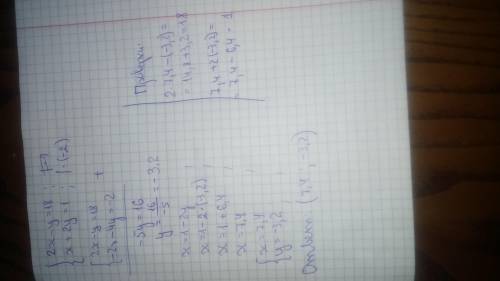 { 2x-y=18 ;
{ x+2y=1 ; |·(-2)
{ 2x-y=18
{ -2x-4y=-2 +
-5y=16
y= 16/-5 = -3,2
x=1-2y ;
x=1-2·(-3,2) ;
x=1+6,4 ;
x=7,4
{ x=7,4 ;
{ y=-3,2 ;
Ответ: (7,4 ; -3,2)
Проверка:
2·7,4-(-3,2)=
=14,8+3,2=18
7,4+2·(-3,2)=
=7,4-6,4=1